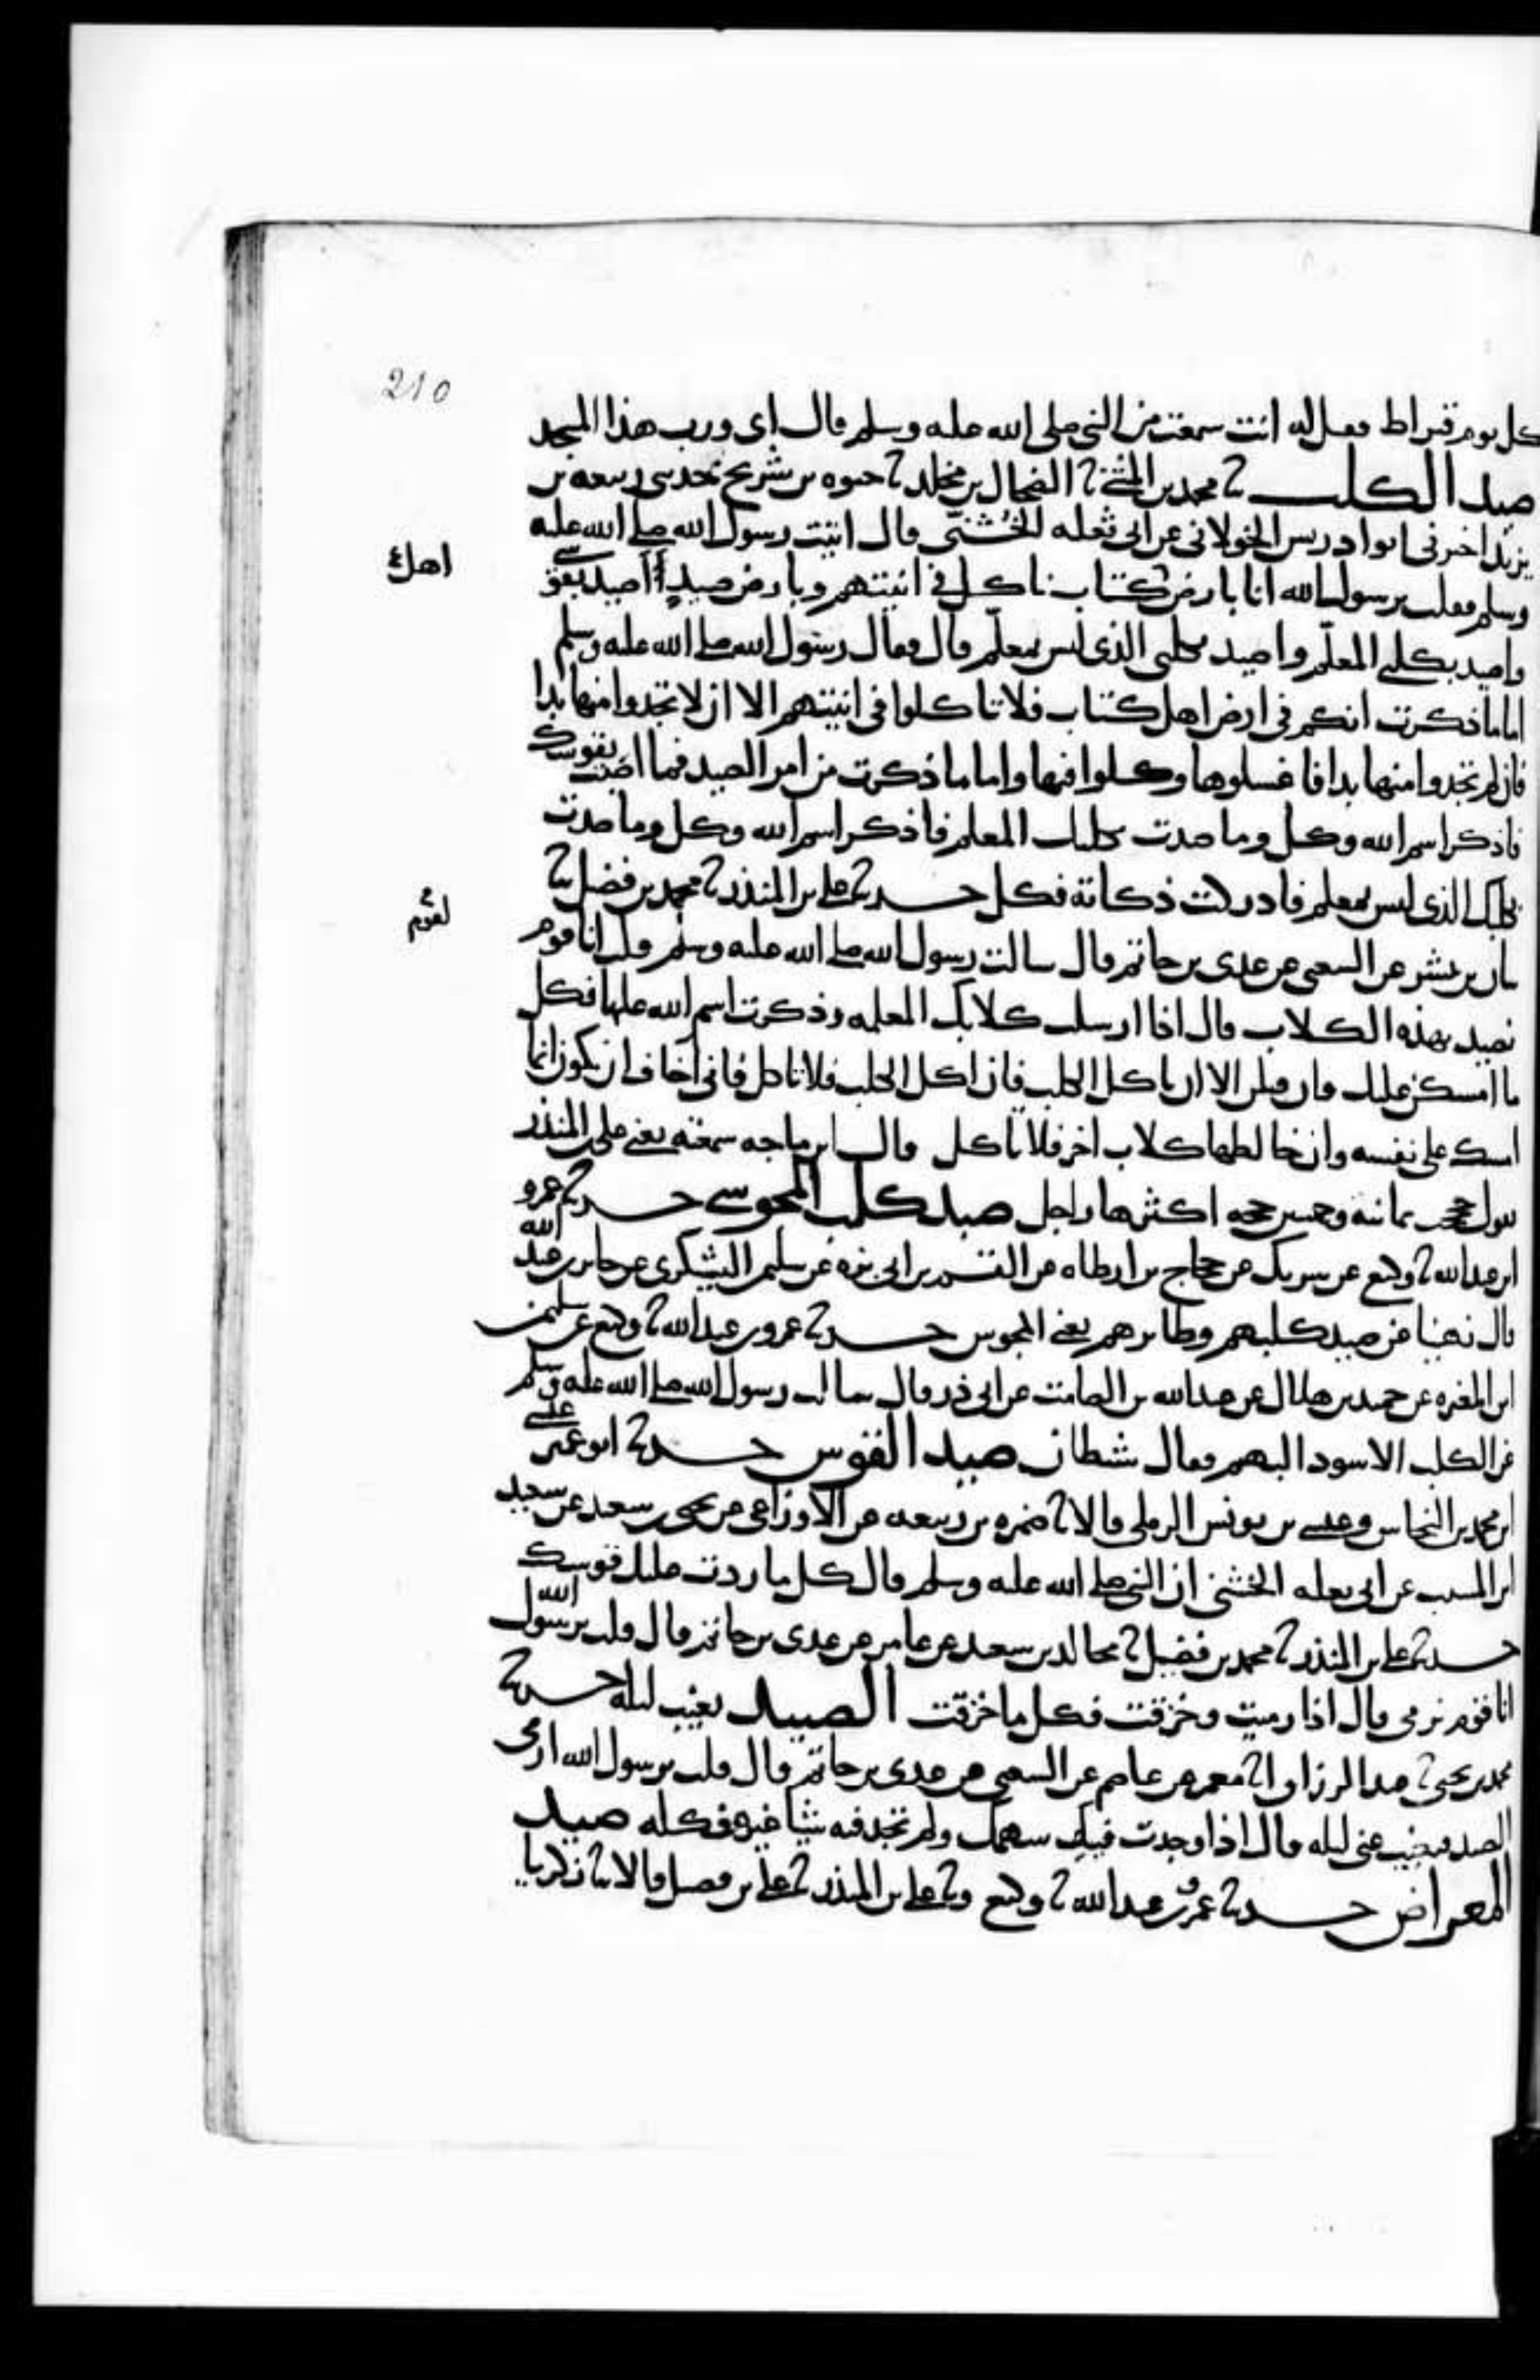 210
كل يوم قيراط فقيل له انت سمعت من النبي صلى الله عليه وسلم قال إي ورب هذا المسجد
صيد الكلب ثنا محمد بن المثنى ثنا الضحاك بن مخلد ثنا حيوه بن شريح حدثني ربيعه بن
يزيد اخبرني ابو ادريس الخولاني عن ابي ثعلبه الخُشَني قال اتيت رسول الله صلى الله عليه
اهل
وسلم فقلت يرسول الله انا بارض كتاب ناكل في انيتهم وبارض صيدٍ أصيد بقوسي
واصيد بكلبي المعلّم واصيد بكلبي الذي ليس بمعلّم قال فقال رسول الله صلى الله عليه وسلم
اما ما ذكرت انكم في ارض اهل كتاب فلا تاكلوا في انيتهم الا ان لا تجدوا منها بدا
فان لم تجدوا منها بدا فاغسلوها وكلوا فيها واما ما ذكرت من امر الصيد فما اصبت بقوسك
فاذكر اسم الله وكل وما صدت بكلبك المعلم فاذكر اسم الله وكل وما صدت
بكلبك الذي ليس بمعلم فادركت ذكاته فكل حدثنا علي بن المنذر ثنا محمد بن فضيل ثنا
لقوم
بيان بن بشر عن الشعبي عن عدي بن حاتم قال سالت رسول الله صلى الله عليه وسلم قلت انا قوم
نصيد بهذه الكلاب قال اذا ارسلت كلابك المعلمه وذكرت اسم الله عليها فكل
ما امسكن عليك وان قتلن الا ان ياكل الكلب فان اكل الكلب فلا تاكل فاني اخاف ان يكون انما
امسك على نفسه وان خالطها كلاب اخر فلا تاكل قال ابن ماجه سمعته يعني علي بن المنذر
يقول حججت ثمانية وخمسين حجه اكثرها راجل صيد كلب المجوسي حدثنا عمرو
ابن عبد الله ثنا وكيع عن شريك عن حجاج بن ارطاه عن القسم بن ابي بزه عن سليمن اليشكري عن جابر بن عبد الله
قال نهينا عن صيد كلبهم وطايرهم يعني المجوس حدثنا عمرو بن عبد الله ثنا وكيع عن سليمن
ابن المغيره عن حميد بن هلال عن عبد الله بن الصامت عن ابي ذر قال سالت رسول الله صلى الله عليه وسلم
عن الكلب الاسود البهيم فقال شيطان صيد القوس حدثنا ابو عمير عيسى
ابن محمد بن النحاس وعيسى بن يونس الرملي قالا ثنا ضمره بن ربيعه عن الاوزاعي عن يحيى بن سعيد عن سعيد
ابن المسيب عن ابي ثعلبه الخشني ان النبي صلى الله عليه وسلم قال كل ما ردت عليك قوسك
حدثنا علي بن المنذر ثنا محمد بن فضيل ثنا مجالد بن سعيد عن عامر عن عدي بن حاتم قال قلت يرسول الله
انا قوم نرمي قال اذا رميت وخزقت فكل ما خزقت الصيد يغيب ليله حدثنا
محمد بن يحيى ثنا عبد الرزاق انا معمر عن عاصم عن الشعبي عن عدي بن حاتم قال قلت يرسول الله ارمي
الصيد فيغيب عني ليله قال اذا وجدت فيه سهمك ولم تجد فيه شيا غيره فكله صيد
المعراض حدثنا عمرو بن عبد الله ثنا وكيع وثنا علي بن المنذر ثنا محمد بن فضيل قالا ثنا زكريا